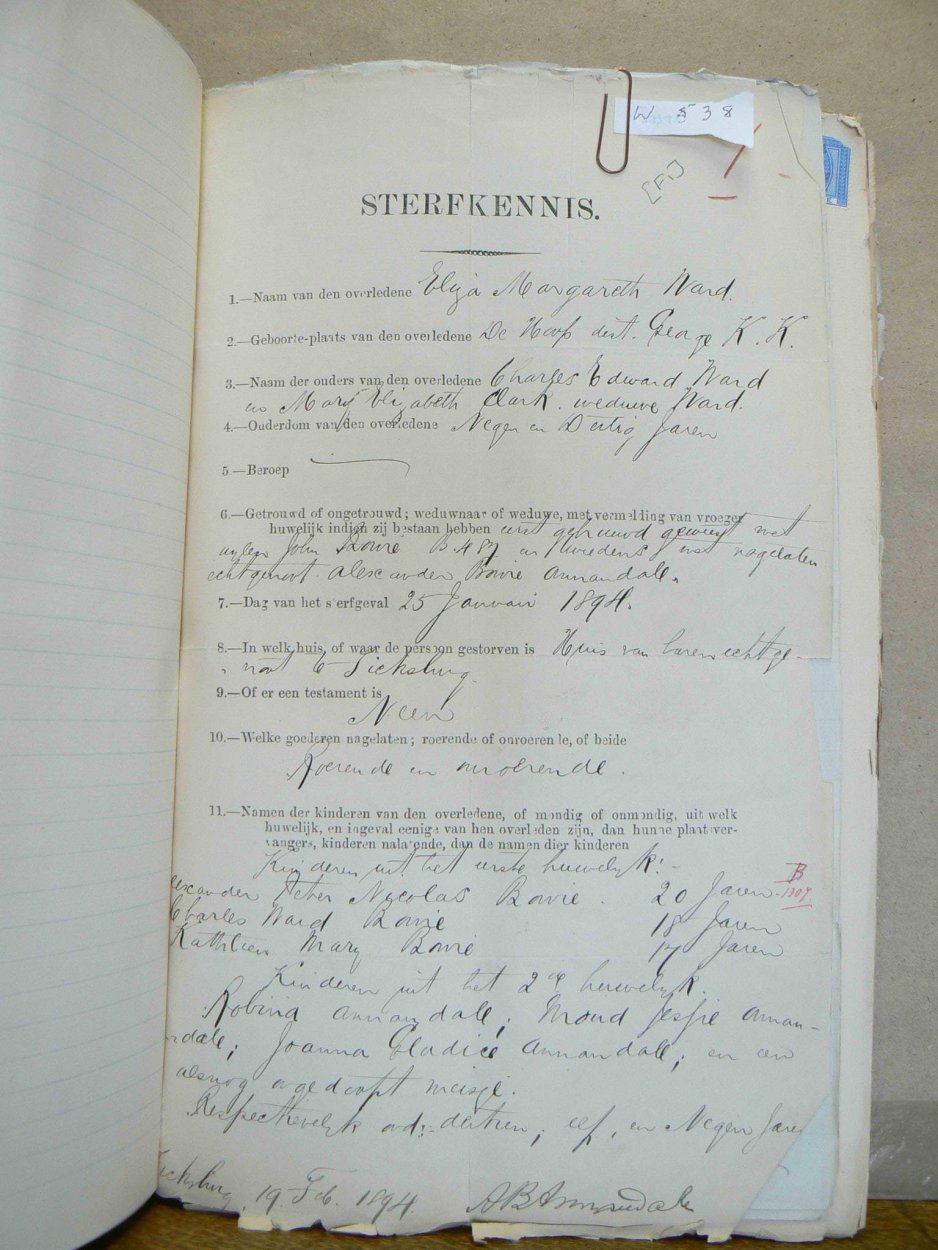 W 538
[Fi]
STERFKENNIS.
1.—Naam van den overledene Eliza Margareth Ward.
2.—Geboorte-plaats van den overledene De Hoop dist. George K. K.
3.—Naam der ouders van den overledene Charles Edward Ward
en Mary Elizabeth Clark. weduwe Ward.
4.—Ouderdom van den overledene Negen en Dertig Jaren
5.—Beroep
6.—Getrouwd of ongetrouwd; weduwnaar of weduwe, met vermelding van vroeger
huwelijk indien zij bestaan hebben eerst getrouwd geweest met
wylen John Bowie B 487 en tweedens met nagelaten
echtgenoot Alexander Bowie Annandale.
7.—Dag van het sterfgeval 25 Januari 1894.
8.—In welk huis, of waar de persoon gestorven is Huis van haren echtge-
noot te Ficksburg.
9.—Of er een testament is
Neen
10.—Welke goederen nagelaten; roerende of onroerende, of beide
Roerende en onroerende.
11.—Namen der kinderen van den overledene, of mondig of onmondig, uit welk
huwelijk, en ingeval eenige van hen overleden zijn, dan hunne plaatsver-
vangers, kinderen nalatende, dan de namen dier kinderen
Kinderen uit het eerste huwelyk:-
lexander Peter Nicolas Bowie. 20 Jaren B
Charles Ward Bowie 18 Jaren
Kathleen Mary Bowie 17 Jaren
Kinderen uit het 2de huwelyk.
Robina Annandale; Maud Jessie Annan-
dale; Joanna Gladice Annandale; en een
alsnog ongedoopt meisje.
Respectievelyk oud:- dertien, elf, en Negen Jaren
icksburg, 19 Feb. 1894 A B Annandale